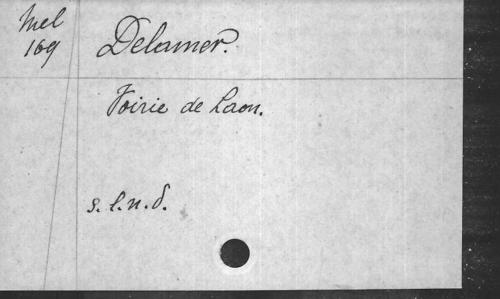 Mel
169
Delamer.
Voirie de Laon.
s.l.n.d.